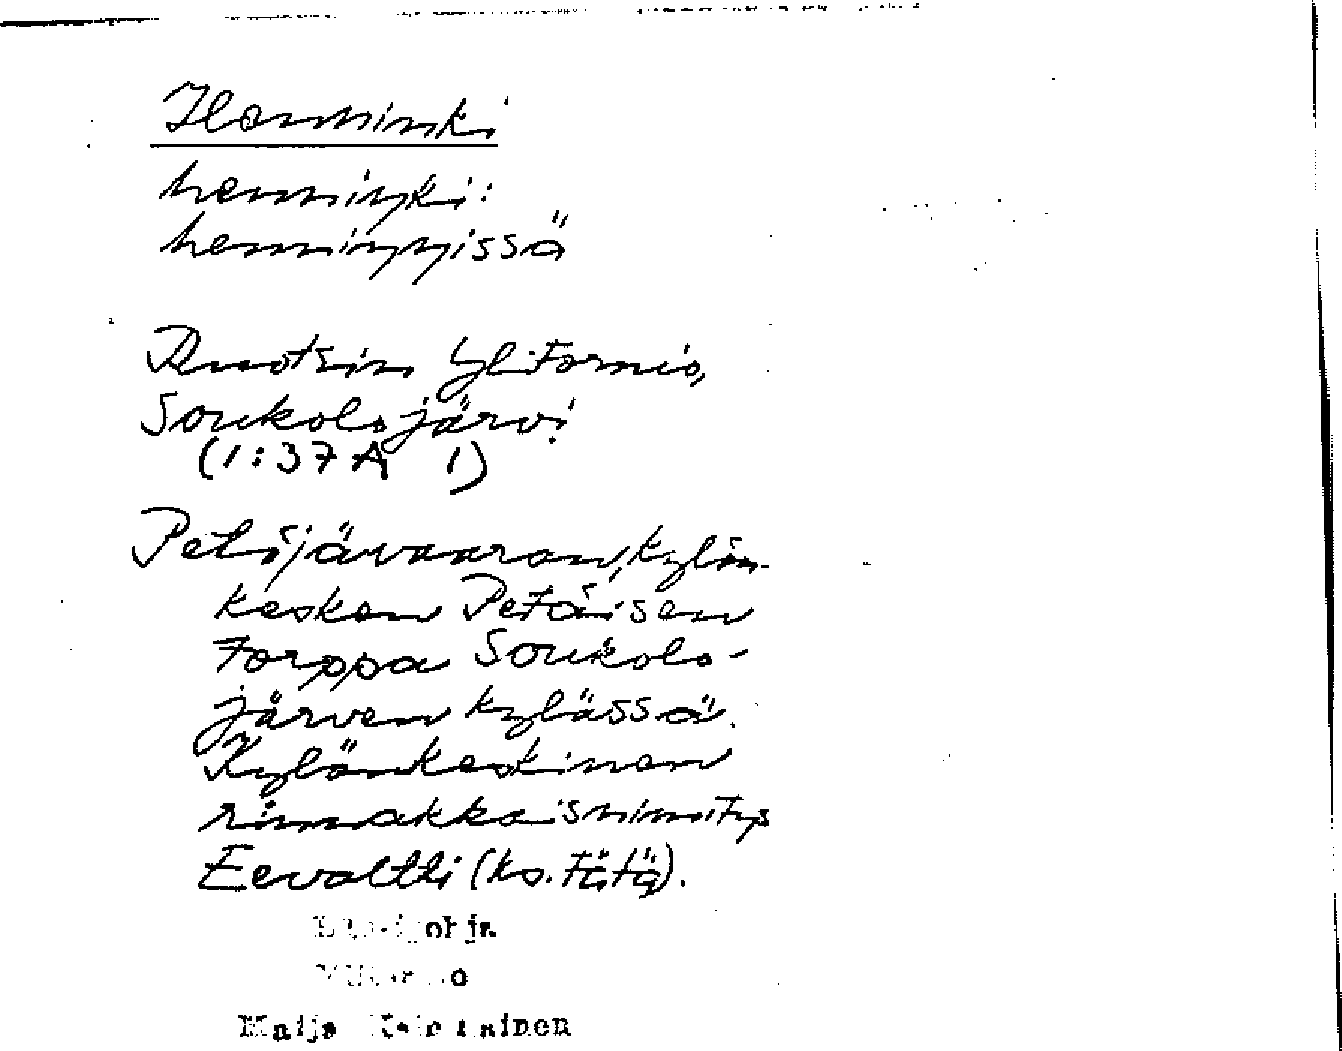 henninki:
henniŋŋissä
Ruotsin Ylitornio,
Soukolojärvi
(1:37 A 1)
Petäjävaaran, kylän-
keskan Petäisen
torppa Soukolo-
järven kylässä.
Kylänkeskinen
rinnakkaisnimitys
Eevaltti (ks. tätä).
Maija